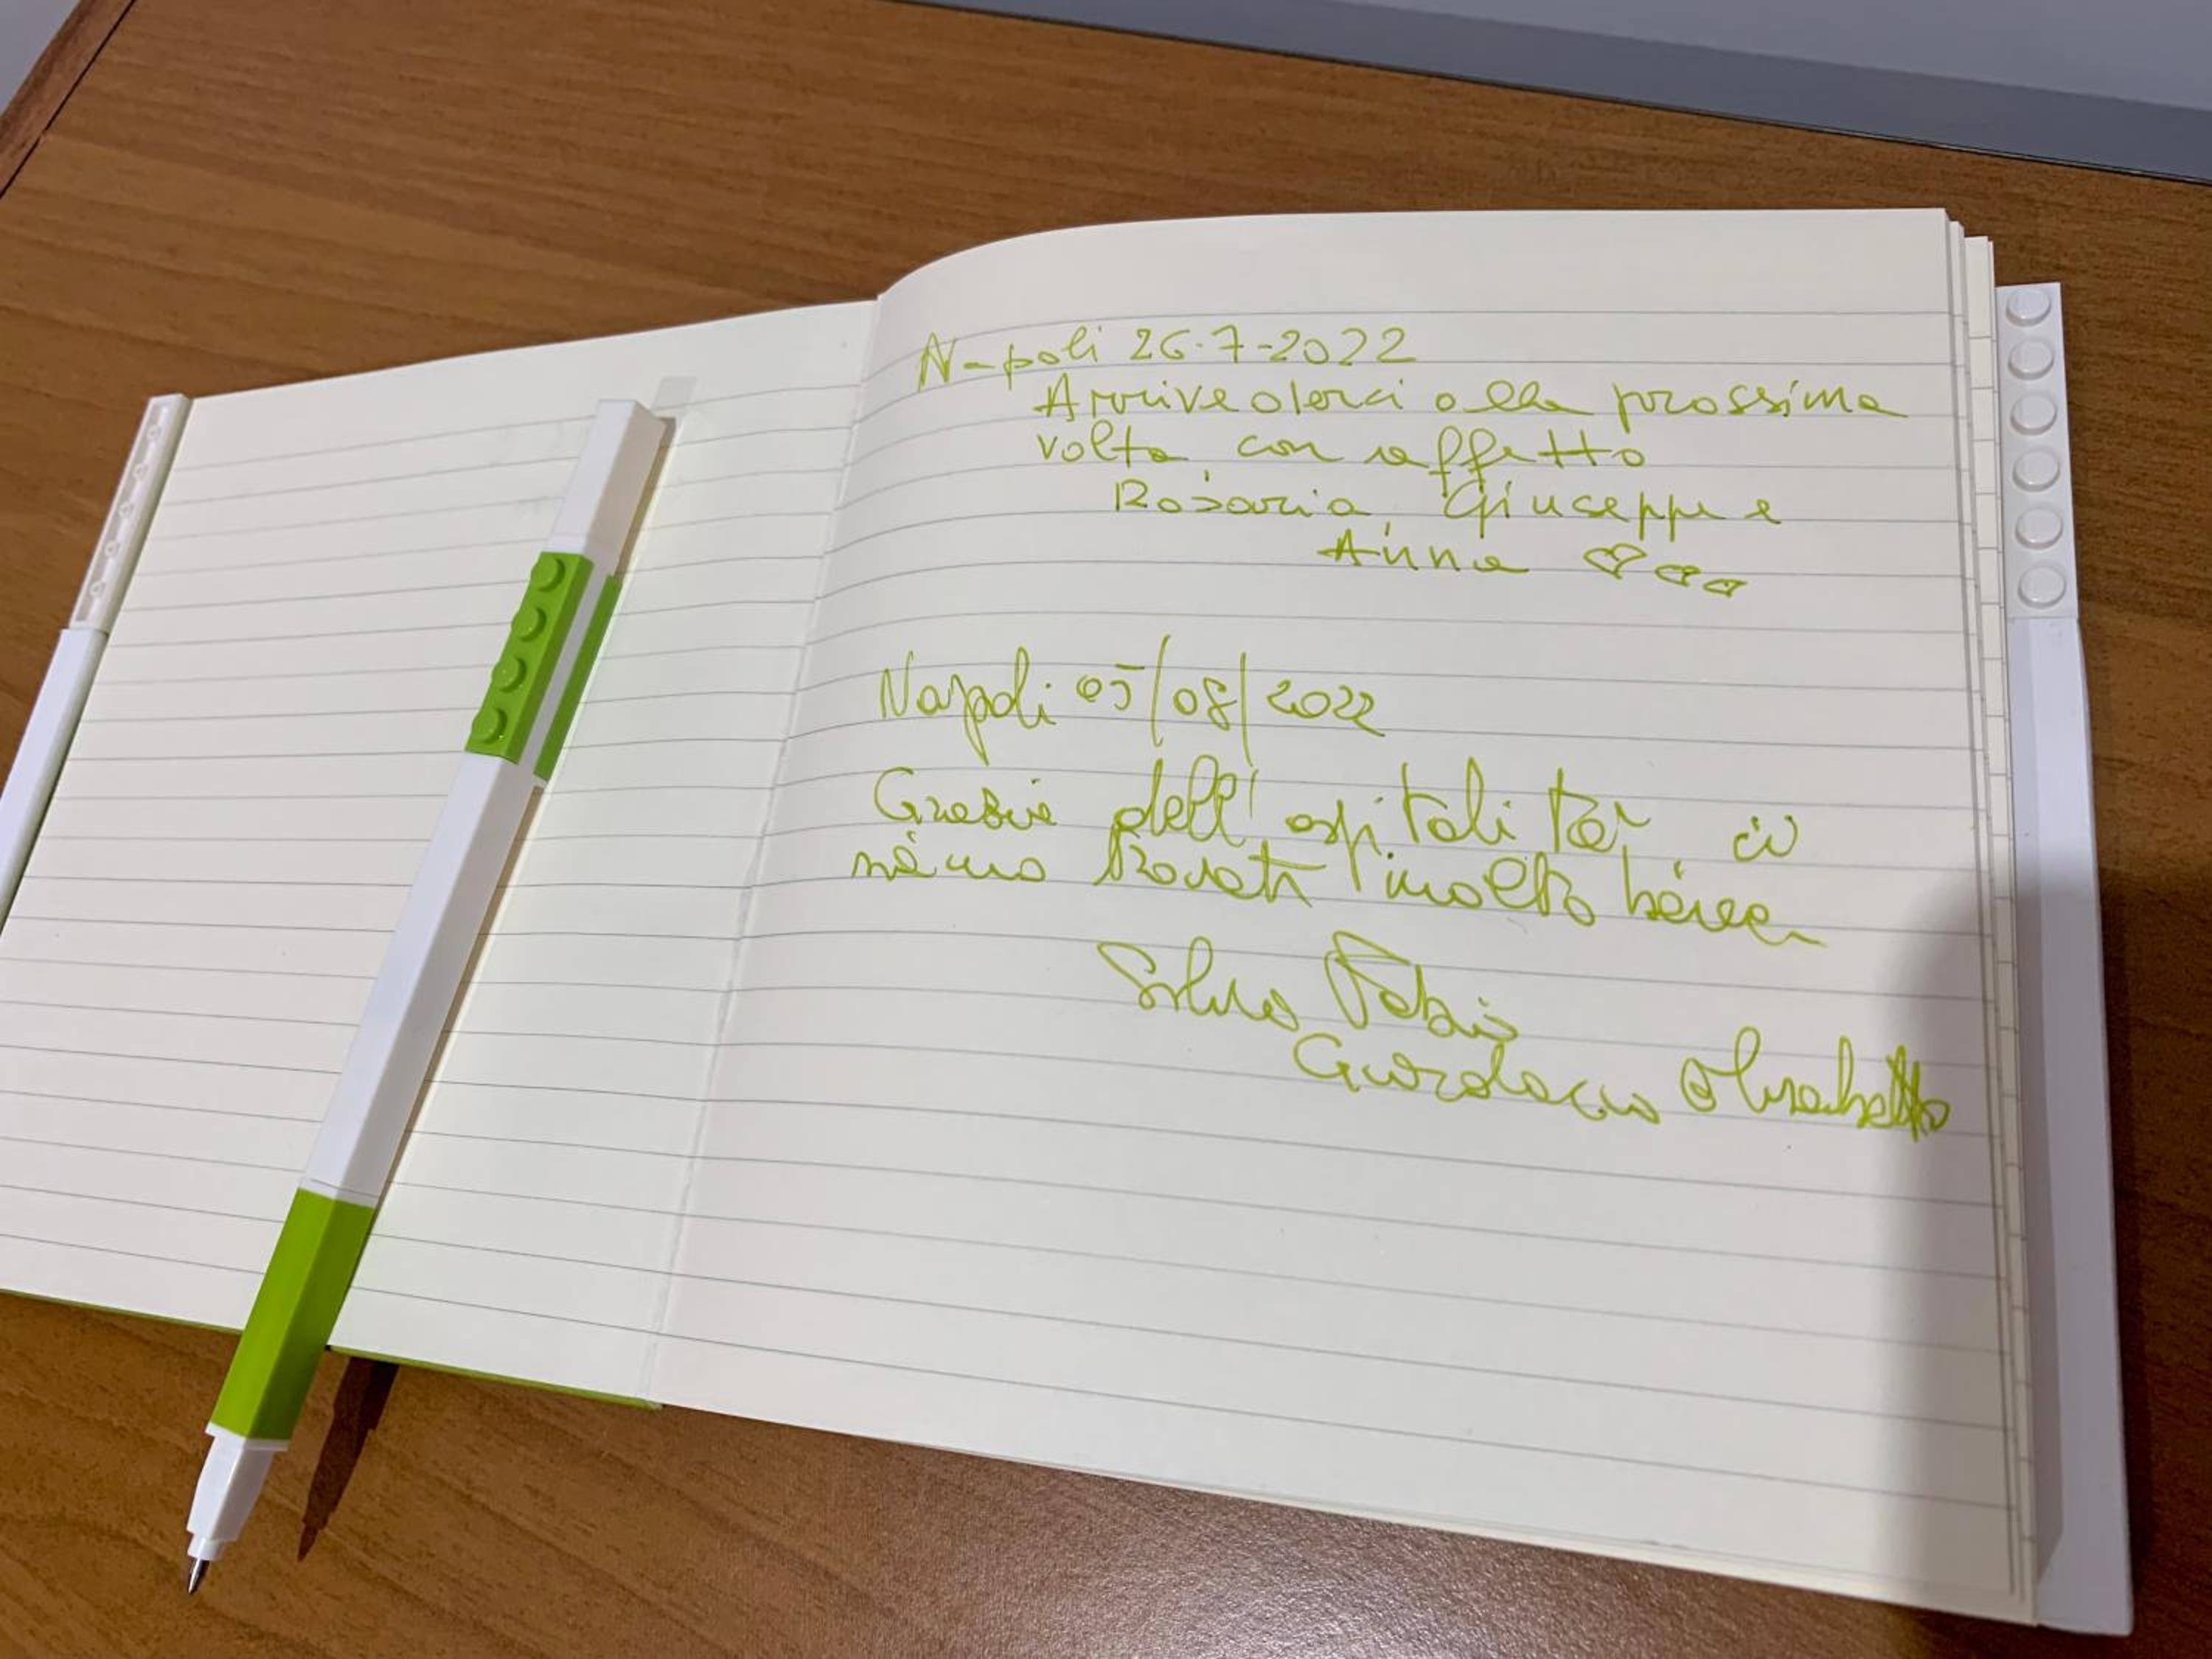 Napoli 26-7-2022
Arrivederci alla prossima
volta, con affetto
Rosaria, Giuseppe e
Anna
Napoli 05/08/2022
Grazie dell'ospitalità ci
siamo trovati molto bene
Silvia Fabio
Giordano Elisabetta